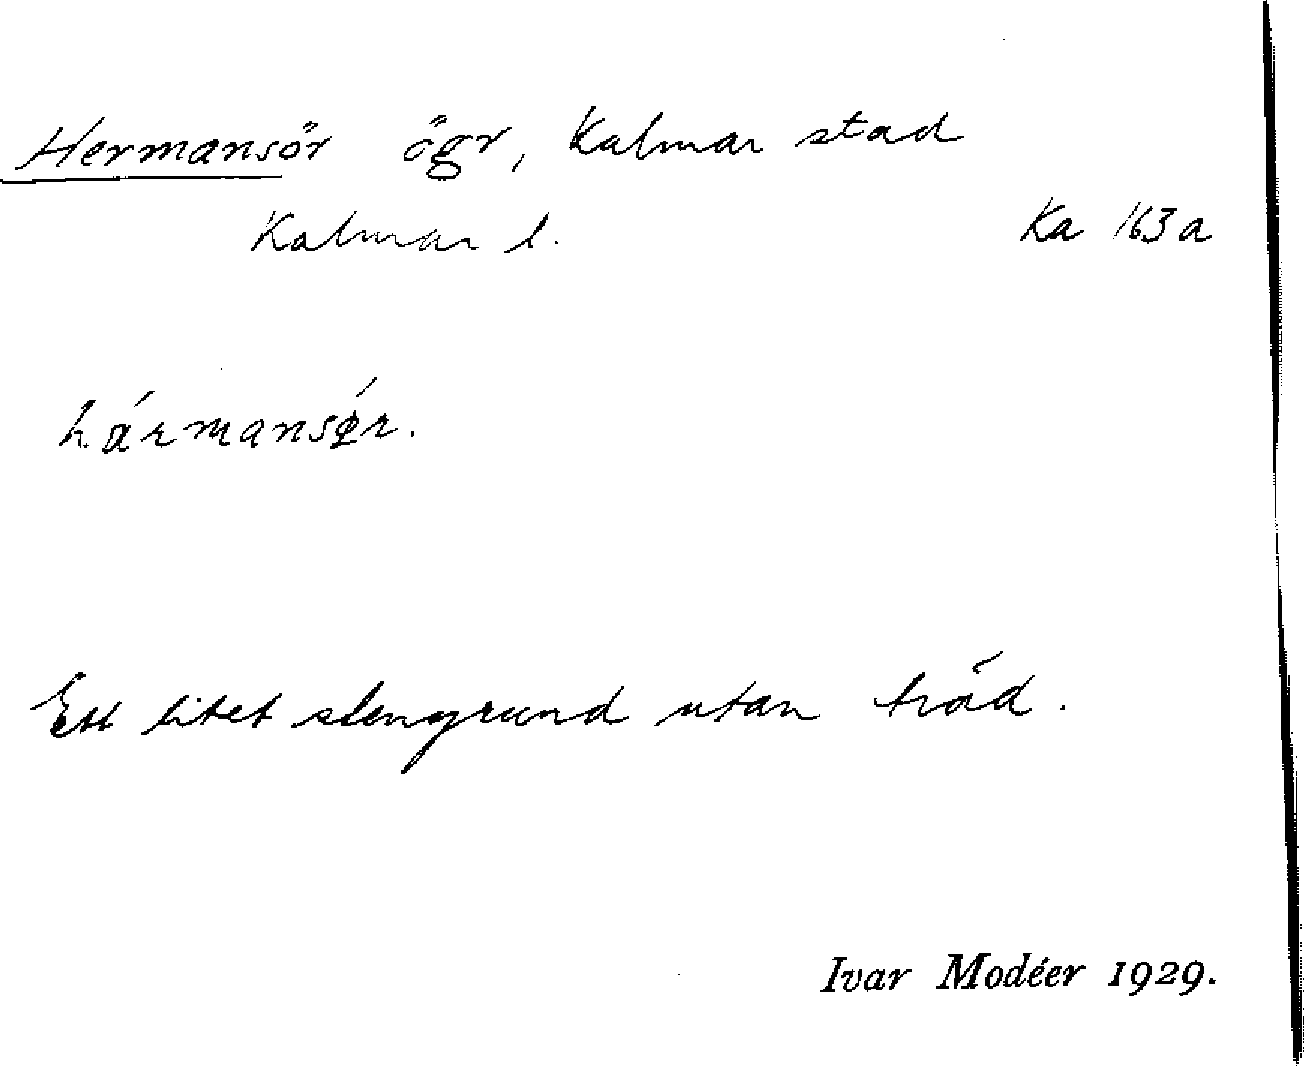 Hermansör ögr, Kalmar stad
Kalmar l. Ka 163a
hármansǿr.
Ett litet stengrund utan träd.
Ivar Modéer 1929.